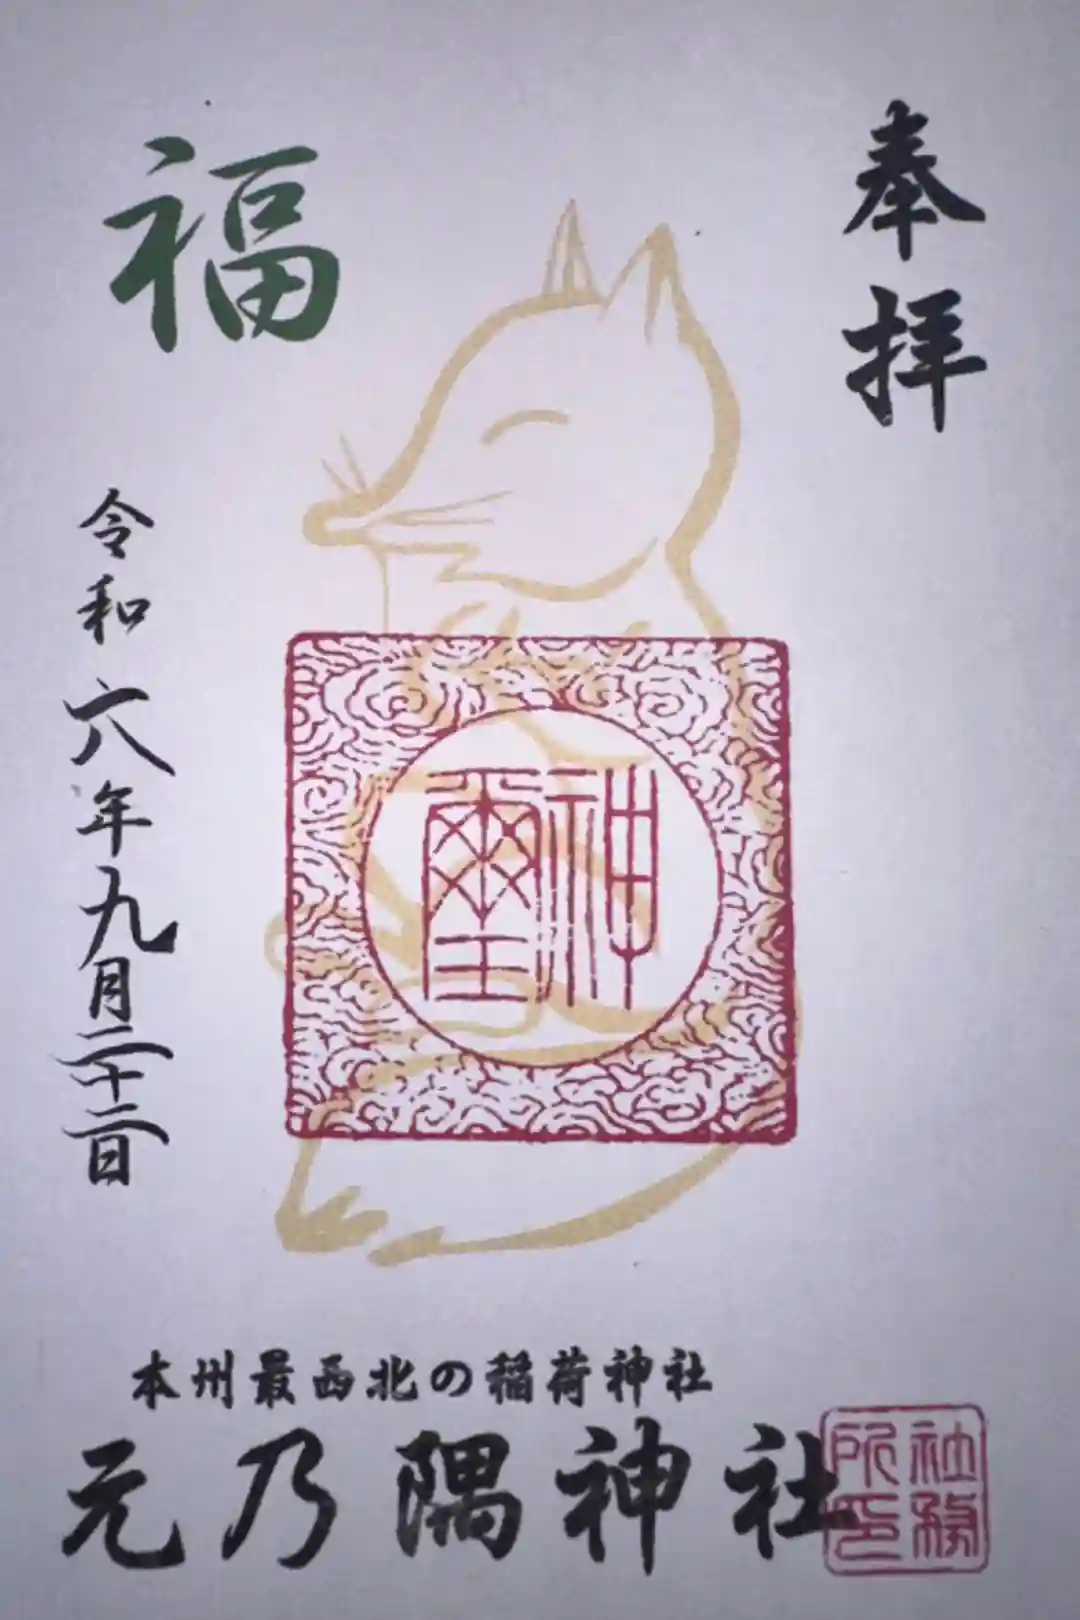 奉拝
福
神璽
令和六年九月二十二日
本州最西北の稲荷神社
元乃隅神社
社務
所印